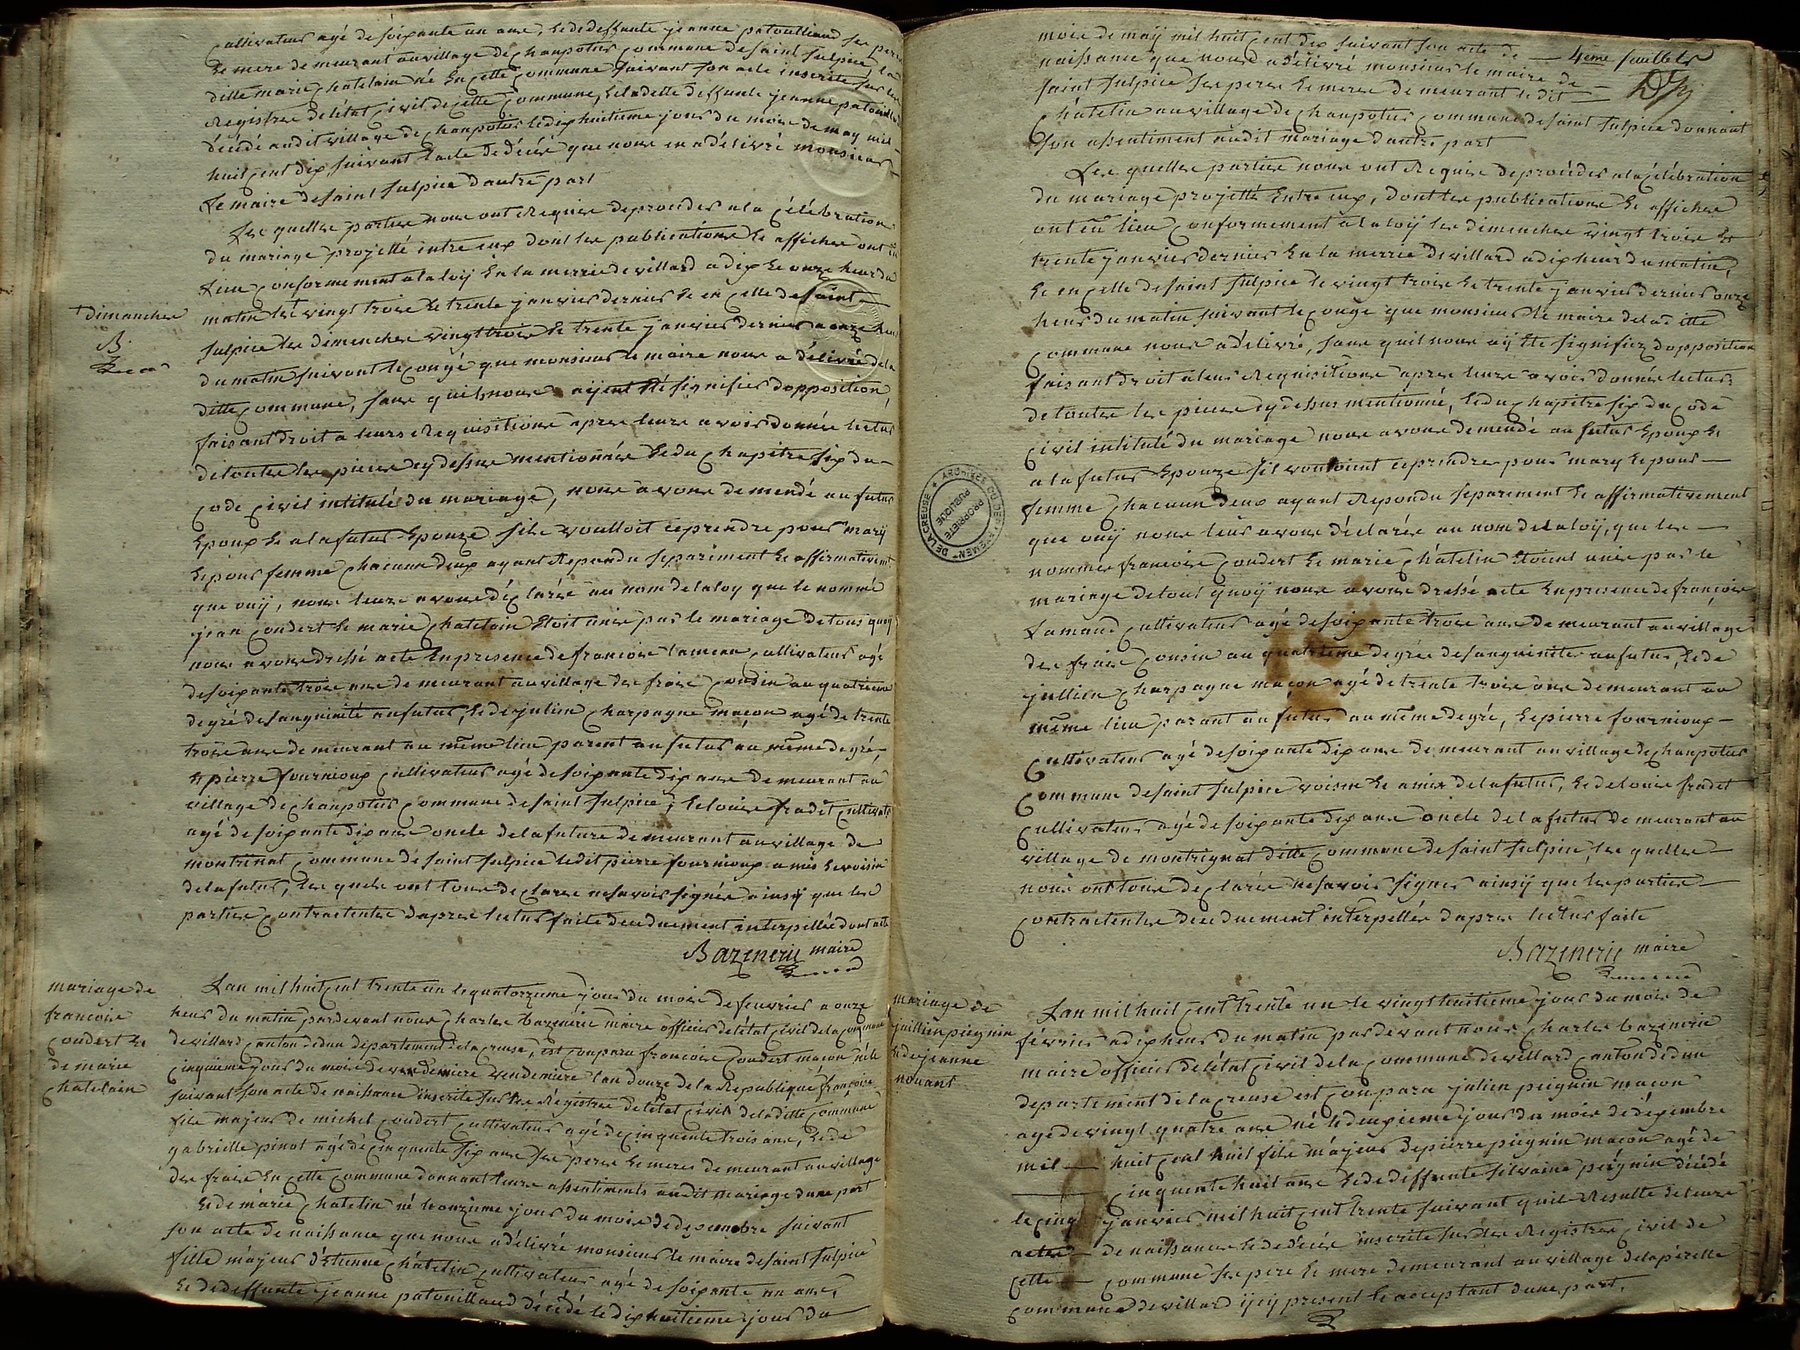 cultivateur agé de soixante un ans, & de deffunte jeanne patouillaud ses pere
& mere demeurant au village de chanpotier commune de saint sulpice la
ditte marie chatelain né en cette commune suivant son acte inscrite sur les
Registres de létat civil de cette commune, & ladette deffunte jeanne patouillaud
décédé audit village de chanpotier le dix huitieme jour du mois de may mil
huit cent dix suivant lacte de décés que nous en a délivré monsieur
Le maire de saint sulpice dautre part
Les quelles parties nous ont Requis de procéder a la célébration
du mariage projetté entre eux dont les publications & affiches ont eu
Lieu conformement a la loÿ en la merrie de villard a dix & onze heur du
matin les vingt trois & trente janvier dernier & en celle de saint
sulpice les demenches vingt trois & trente janvier dernier a onze heur
du matin suivant le congé que monsieur le maire nous a délivré de la
ditte commune, sans quil nous aÿent été signifier dopposition,
faisant droit a leurs Requisitions apres leurs avoir donnée lectur
de toutes les pieces cy dessus mentionnés & du chapitre six du
code civil intitulé du mariage, nous avons demendé au futur
Epoux & a la futur Epouze sils voulloit ce prendre pour marÿ
& pour femme chacun deux ayant Repondu séparément & affirmativement
que ouÿ, nous leurs avons déclarée au nom de la loy que le nommé
jean coudert & marie chatelain étoit unis par le mariage de tous quoy
nous avons dressé acte En presence de francois lameau cultivateur agé
de soixante trois ans demeurant au village des frais cousin au quatrieme
degré de sanguinité au futur, & de julien charpagne maçon agé de trente
trois ans demeurant au même lieu parent au futur au même degré,
& pierre fournioux cultivateur agé de soixante dix ans demeurant au
village de chanpotier commune de saint sulpice, & louis fradet cultivateur
agé de soixante dix ans oncle de la future demeurant au village de
montrinat commune de saint sulpice ledit pierre fournioux amis & voisin
de la futur, les quels ont tous declarée ne savoir signée ainsÿ que les
parties contractentes dapres lectur faite deeduement interpellée dont acte
Bazenerie maire
+ dimanches
B.
mariage de
francois
coudert &
de marie
chatelain
Lan mil huit cent trente un le quatorzieme jour du mois de feuvrier a onze
heur du matin pardevant nous charles bazenerie maire officier de létat civil de la commune
de villard canton de dun département de la creuse, est conparu francois coudert maçon né le
cinquieme jour du mois de vendemiere vendemiere lan douze de la Republique françoise
suivant son acte de naissance inscrite sur les Registres de létat civil de la ditte commune
fils majeur de michel coudert cultivateur agé de cinquente trois ans, & de
gabrielle pinot agé de cinquente six ans ses peres & meres demeurant au village
des frais En cette commune donnant leurs assentiments audit mariage dune part
& de marie chatelin né le onzieme jour du mois de descenbre suivant
son acte de naissance que nous a délivré monsieur le maire de saint sulpice
fille majeur détienne châtelin cultivateur agé de soixante un ans,
& de deffunte jeanne patouillaud décédé le dix huitieme jour du
4eme feuillets
mois de maÿ mil huit cent dix suivant son acte de
naissance que nous a délivré monsieur le maire de
saint sulpice ses peres & meres demeurant ledit
châtelin au village de chanpotier commune de saint sulpice donnant
son assentiment audit mariage dautre part
Les quelles parties nous ont Requis de procéder a la célébration
du mariage projetté Entre eux, dont les publications & affiches
ont eü lieu conformement a la loÿ les dimenches vingt trois &
trente janvier dernier En la merrie de villard a dix heur du matin,
& en celle de saint sulpice le vingt trois & trente janvier dernier onze
heur du matin suivant le conge que monsieur le maire de la ditte
commune nous a délivré, sans quil nous aÿ été signifiez dopposition
faisant droit a leur Requisitions apres leurs avoir donnée lectur
de toutes les pieces cy dessus mentionné, & du chapitre six du code
civil intitulé du mariage nous avons demendé au futur Epoux &
a la futur Epouze sil voulloient ce prendre pour mary & pour
femme chacun deux ayant Repondu séparement & affirmativement
que ouÿ nous leur avons déclarée au nom de la loÿ, que les
nommes francois coudert & marie châtelin étoient unis par le
mariage de tous quoÿ nous avons dressé acte En presence de françois
Lamaud cultivateur agé de soixante trois ans demeurant au village
des frais cousin au quatrieme degrée de sanguinité au futur, & de
jullien charpagne maçon agé de trente trois ans demeurant au
même lieu parant au futur au même degré, & pierre fournioux
cultivateur agé de soixante dix ans demeurant au village de chanpotier
commune de saint sulpice voisin & amis de la futur, & de louis fradet
cultivateur agé de soixante dix ans oncle de la futur demeurant au
village de montrignat ditte commune de saint sulpice, les quelles
nous ont tous declarée ne savoir signer ainsiÿ que les parties
contractentes deeduement interpellés dapres lectur faite
Bazenerie maire
mariage de
jullien peignin
& de jeanne
nouant
Lan mil huit cent trente un le vingt huitieme jour du mois de
février a dix heur du matin pardevant nous charles bazenerie
maire officier de létat civil de la commune de villard canton de dun
departement de la creuse est conparu julien peignin maçon
agé de vingt quatre ans né le deuxieme jour du mois de déçembre
mil huit cent huit fils majeur de pierre peignin maçon agé de
cinquente huit ans & de deffunte silvaine peignin décédé
le cinq janvier mil huit cent trente suivant quil Resulte de leurs
actes de naissances & de décés inscrite sur les Registres civil de
cette commune ses pere & mere demeurant au village de la pérelle
commune de villard ÿcÿ present & acceptant dune part.
ARCHIVES DU DEPARTEMENT DE LA CREUSE
PROPRIETE
PUBLIQUE